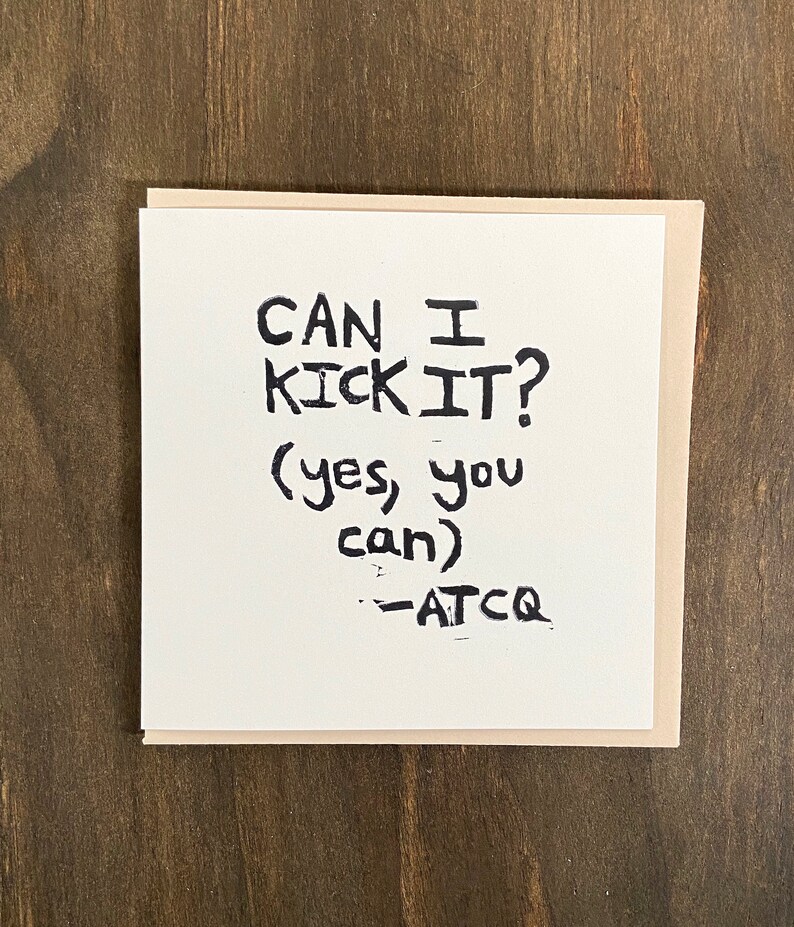 CAN I
KICK IT?
(yes, you
can)
-ATCQ